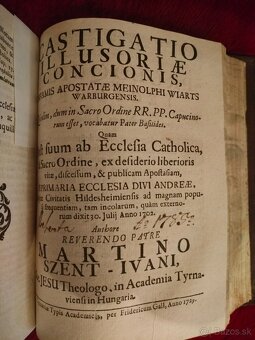 CASTIGATIO
ILLUSORIÆ
CONCIONIS,
APOSTATÆ MEINOLPHI WIARTS
WARBURGENSIS.
dum in Sacro Ordine RR. PP. Capucino-
rum esset, vocabatur Pater Basilides.
Quam
suum ab Ecclesia Catholica,
Sacro Ordine, ex desiderio liberioris
vitæ, discessum, & publicam Apostasiam,
PRIMARIA ECCLESIA DIVI ANDREÆ,
Civitatis Hildesheimensis ad magnam populi
frequentiam, tam incolarum, quàm externo-
rum dixit 30. Julij Anno 1702.
Authore
REVERENDO PATRE
MARTINO
SZENT-IVANI,
JESU Theologo, in Academia Tyrna-
viensi in Hungaria.
Typis Academicis, per Fridericum Gall, Anno